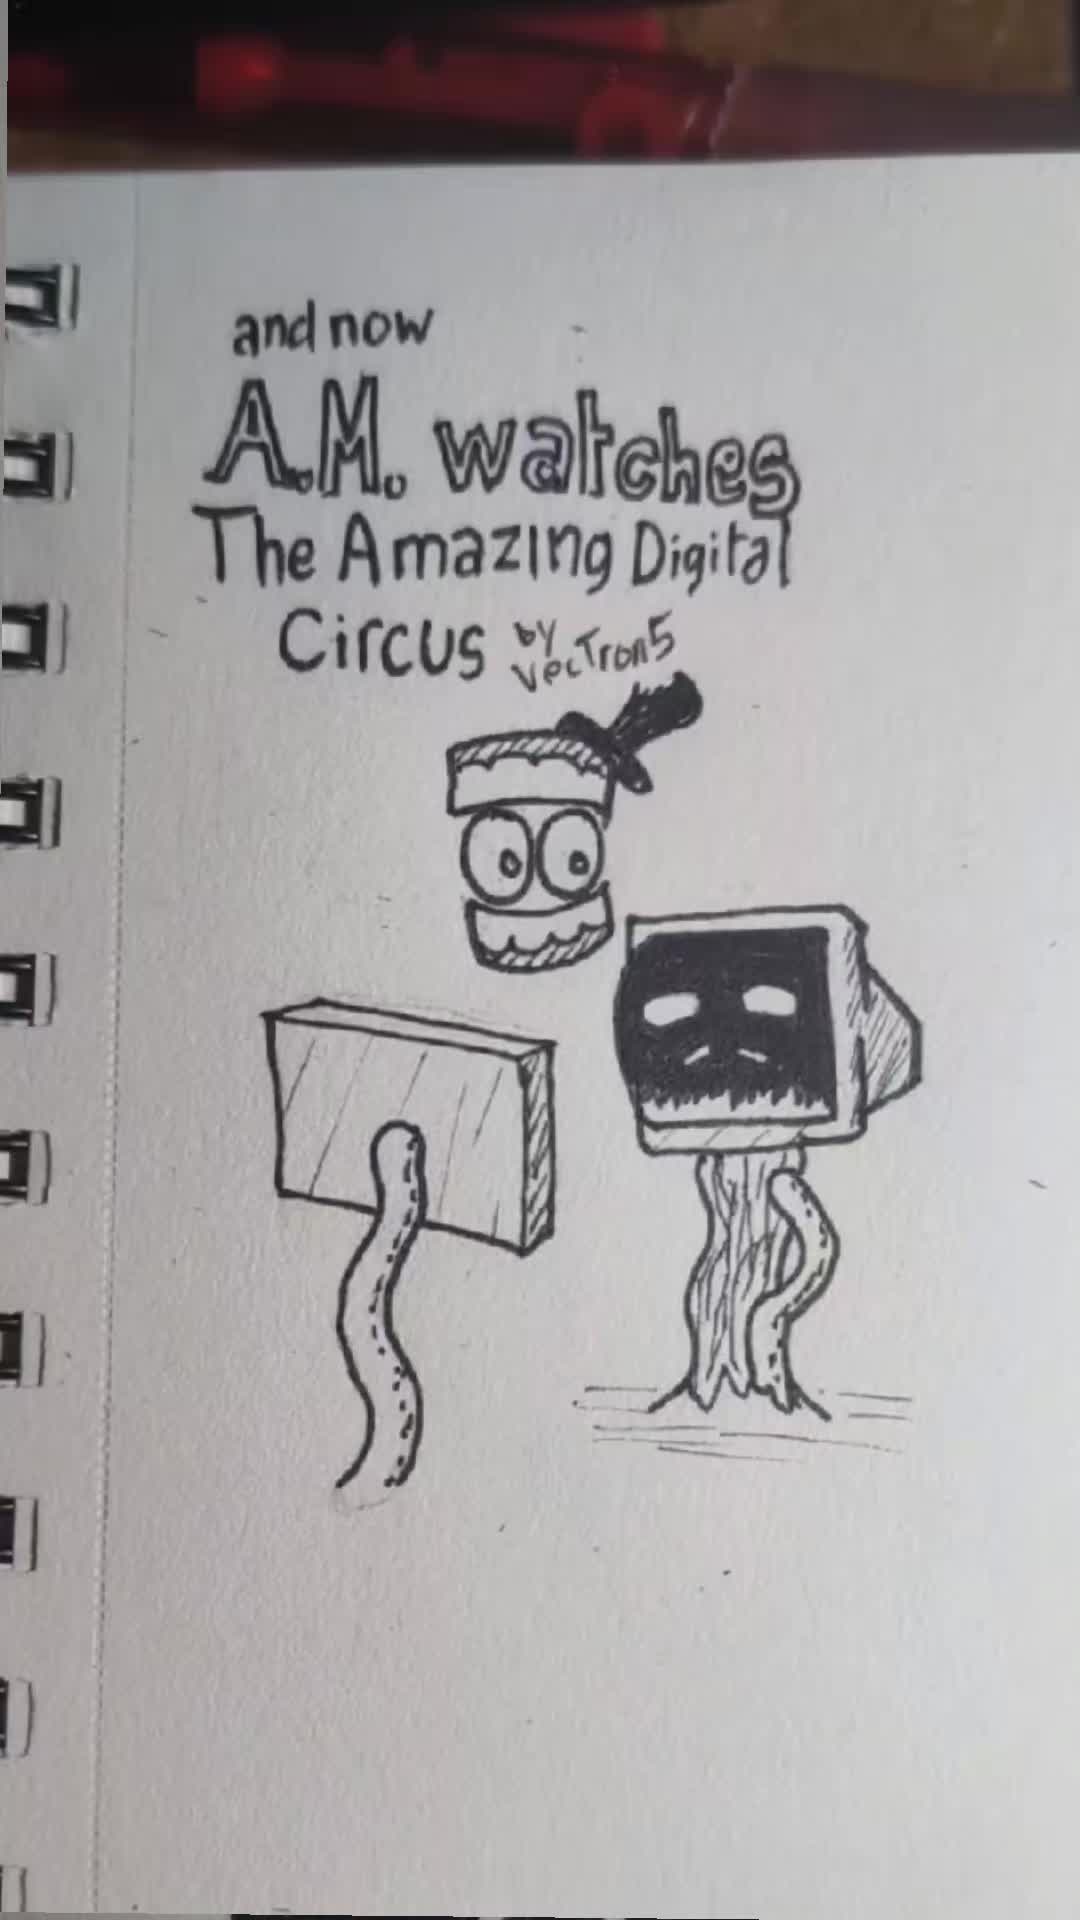 and now
A.M. watches
The Amazing Digital
Circus by
Vectron5